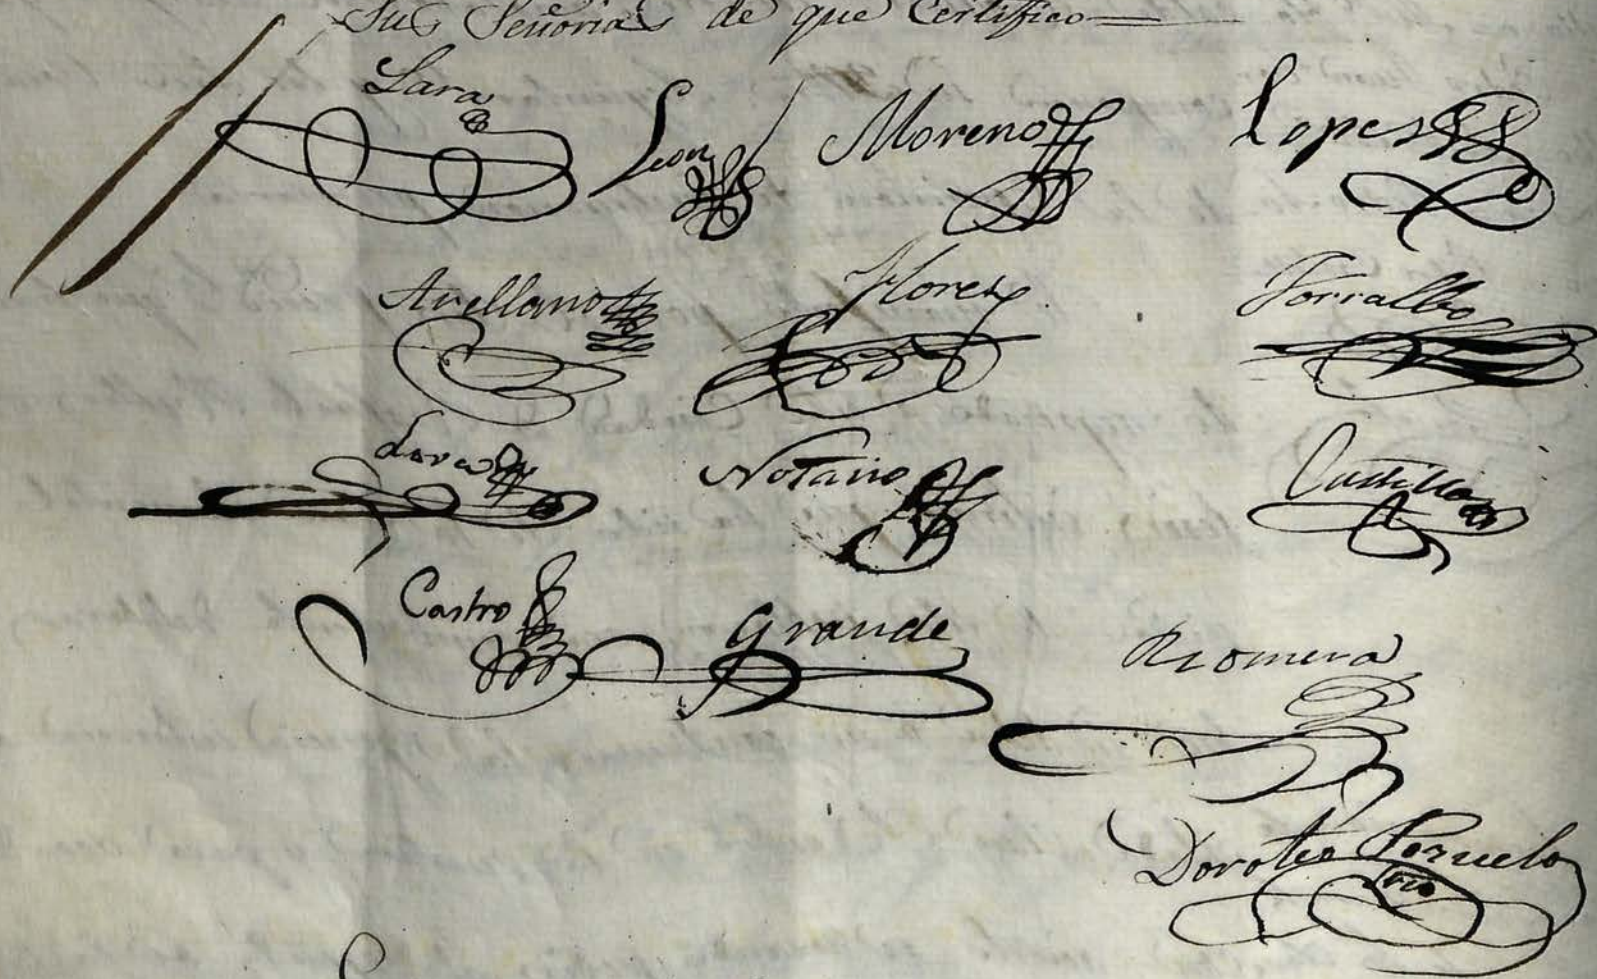 Sus Señorias de que Certifico
Lara Leon Moreno Lopes
Arellano Flores Torralbo
Lara Notario Castillo
Castro Grande Romera
Doroteo Pozuelo
srio